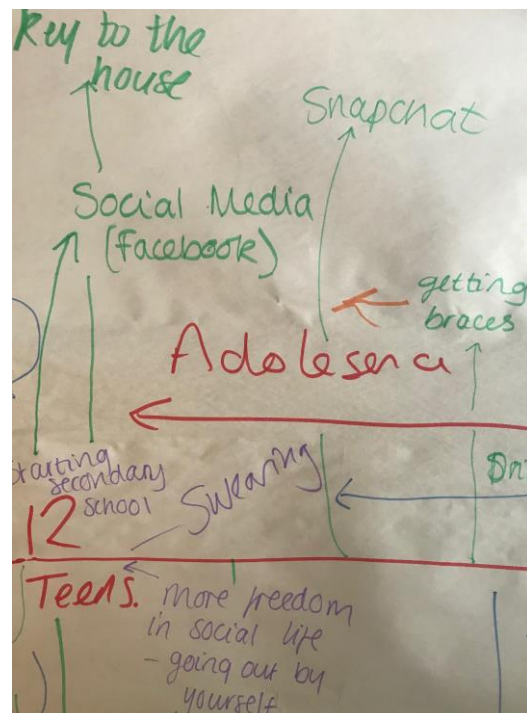 Key to the
house
Snapchat
Social Media
(facebook)
getting
braces
Adolesenc
starting
secondary
school
Swearing
12
Teens.
more freedom
in social life
- going out by
yourself